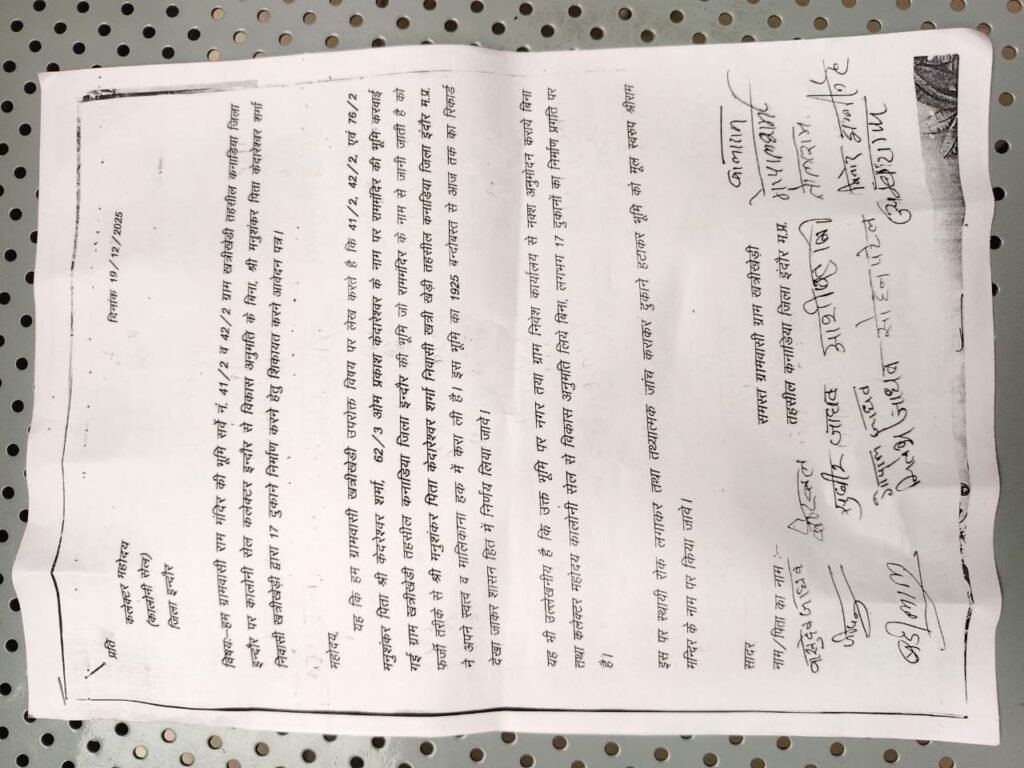 दिनांक 19/12/2025
प्रति
कलेक्टर महोदय
(कालोनी सेल)
जिला इन्दौर
विषयः-हम ग्रामवासी राम मंदिर की भूमि सर्वे नं. 41/2 व 42/2 ग्राम खत्रीखेडी तहसील कनाडिया जिला
इन्दौर पर कालोनी सेल कलेक्टर इन्दौर से विकास अनुमति के बिना, श्री मनुशंकर पिता केदारेश्वर शर्मा
निवासी खत्रीखेडी द्वारा 17 दुकाने निर्माण करने हेतु शिकायत करने आवेदन पत्र।
महोदय
यह कि हम ग्रामवासी खत्रीखेडी उपरोक्त विषय पर लेख करते है कि 41/2, 42/2, एवं 16/2
मनुशंकर पिता श्री केदारेश्वर शर्मा, 62/3 ओम प्रकाश केदारेश्वर के नाम पर राममंदिर की भूमि करवाई
गई ग्राम खत्रीखेडी तहसील कनाडिया जिला इन्दौर की भूमि जो राममंदिर के नाम से जानी जाती है को
फर्जी तरीके से श्री मनुशंकर पिता केदारेश्वर शर्मा निवासी खत्री खेडी तहसील कनाडिया जिला इंदौर म.प्र.
ने अपने स्वत्व व मालिकाना हक में करा ली है। इस भूमि का 1925 बन्दोबस्त से आज तक का रिकार्ड
देखा जाकर शासन हित में निर्णय लिया जावे।
यह भी उल्लेखनीय है कि उक्त भूमि पर नगर तथा ग्राम निवेश कार्यालय से नक्शा अनुमोदन कराये बिना
तथा कलेक्टर महोदय कालोनी सेल से विकास अनुमति लिये बिना, लगभग 17 दुकानों का निर्माण प्रगति पर
है।
इस पर स्थायी रोक लगाकर तथा तथ्यात्मक जांच कराकर दुकाने हटाकर भूमि को मूल स्वरुप श्रीराम
मन्दिर के नाम पर किया जावे।
सादर
समस्त ग्रामवासी ग्राम खत्रीखेडी
तहसील कनाडिया जिला इंदौर म.प्र.
नाम/पिता का नाम :-
वासुदेव जाधव
सुधीर जाधव
सोहन पटेल